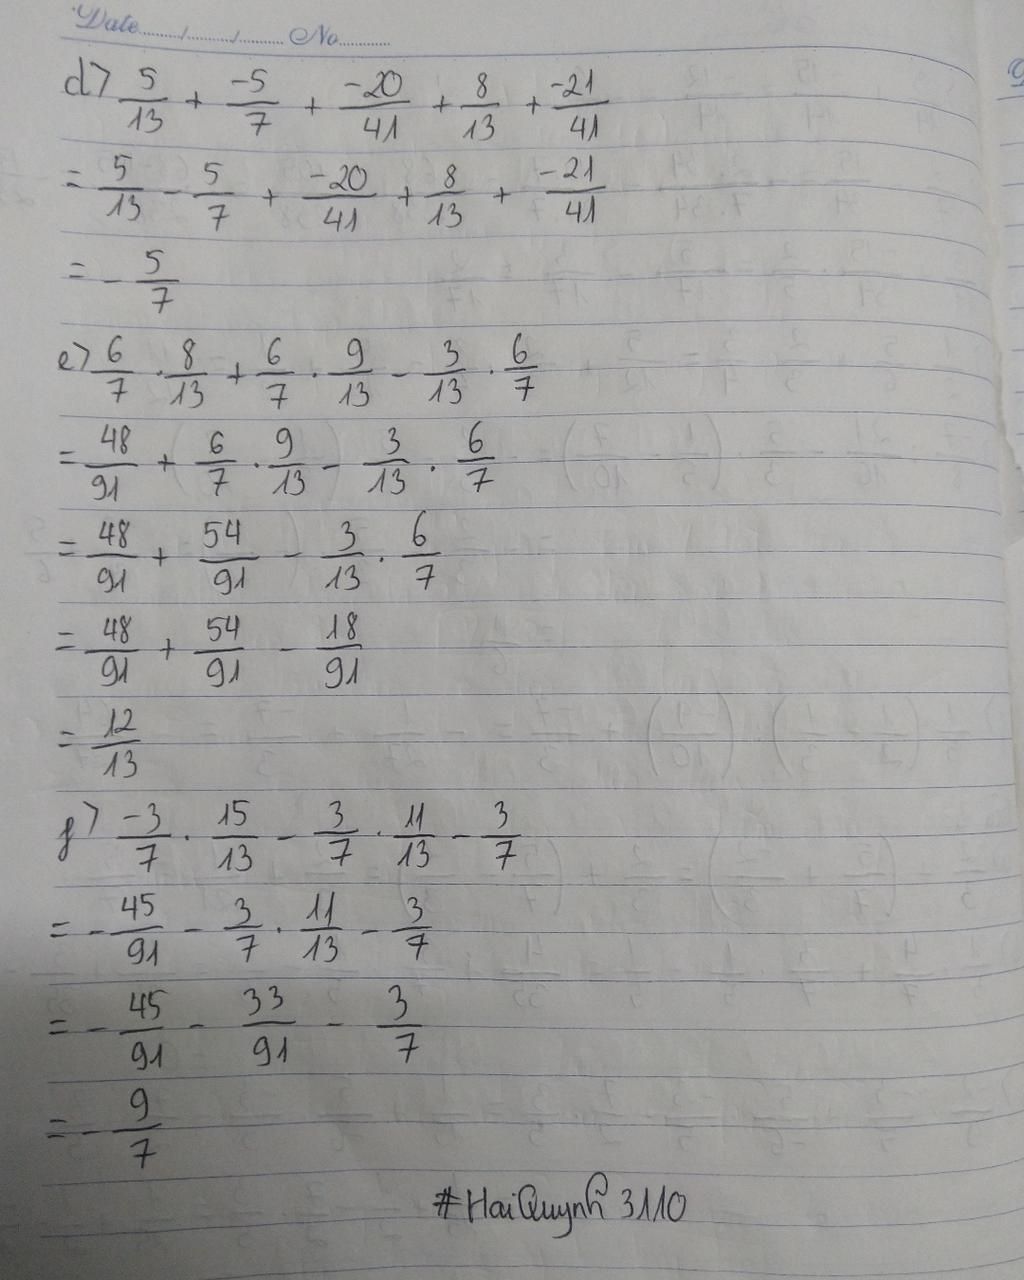 Date......../......../......... No..........
d> 5/13 + -5/7 + -20/41 + 8/13 + -21/41
= 5/13 - 5/7 + -20/41 + 8/13 + -21/41
= - 5/7
e> 6/7 . 8/13 + 6/7 . 9/13 - 3/13 . 6/7
= 48/91 + 6/7 . 9/13 - 3/13 . 6/7
= 48/91 + 54/91 - 3/13 . 6/7
= 48/91 + 54/91 - 18/91
= 12/13
f> -3/7 . 15/13 - 3/7 . 11/13 - 3/7
= - 45/91 - 3/7 . 11/13 - 3/7
= - 45/91 - 33/91 - 3/7
= - 9/7
#HaiQuynh 3110